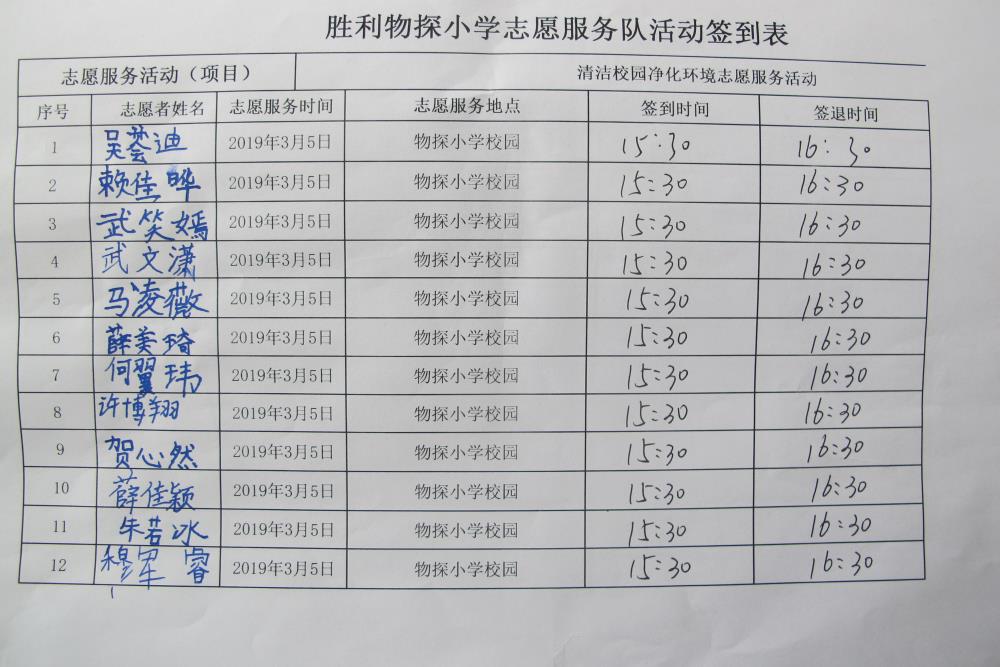 胜利物探小学志愿服务队活动签到表
志愿服务活动（项目） 清洁校园净化环境志愿服务活动
序号 志愿者姓名 志愿服务时间 志愿服务地点 签到时间 签退时间
1 吴荟迪 2019年3月5日 物探小学校园 15:30 16:30
2 赖佳晔 2019年3月5日 物探小学校园 15:30 16:30
3 武笑嫣 2019年3月5日 物探小学校园 15:30 16:30
4 武文潇 2019年3月5日 物探小学校园 15:30 16:30
5 马凌薇 2019年3月5日 物探小学校园 15:30 16:30
6 薛美琦 2019年3月5日 物探小学校园 15:30 16:30
7 何翼玮 2019年3月5日 物探小学校园 15:30 16:30
8 许博翔 2019年3月5日 物探小学校园 15:30 16:30
9 贺心然 2019年3月5日 物探小学校园 15:30 16:30
10 薛佳颖 2019年3月5日 物探小学校园 15:30 16:30
11 朱若冰 2019年3月5日 物探小学校园 15:30 16:30
12 2019年3月5日 物探小学校园 15:30 16:30